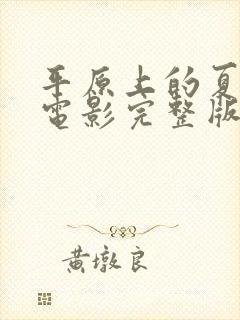 平原上的夏
電影完整版
黄墩良